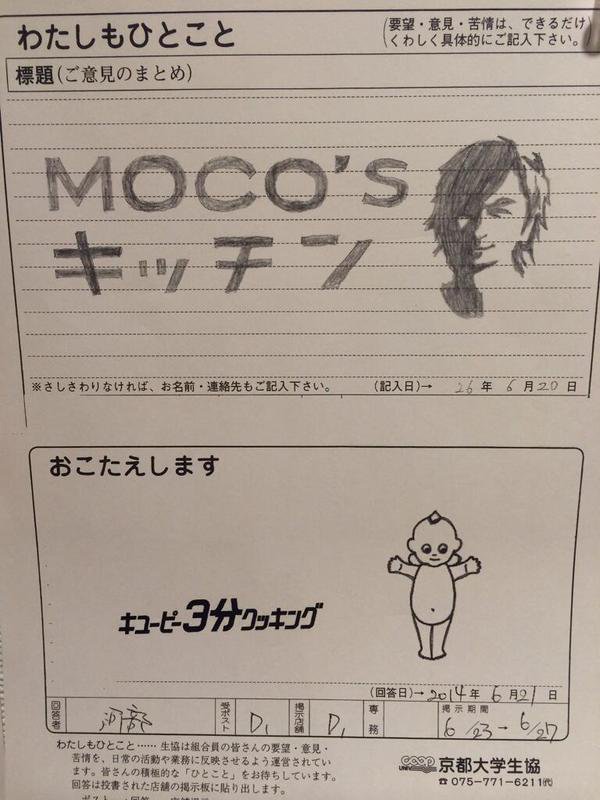 わたしもひとこと
(要望・意見・苦情は、できるだけ
くわしく具体的にご記入下さい。)
標題(ご意見のまとめ)
MOCO'S
キッチン
※さしさわりなければ、お名前・連絡先もご記入下さい。 (記入日)→ 26年6月20日
おこたえします
キユーピー3分クッキング
(回答日)→2014年6月21日
回答者 受ポスト D, 掲示店舗 D, 専務 掲示期間 6/23→6/27
わたしもひとこと……生協は組合員の皆さんの要望・意見・
苦情を、日常の活動や業務に反映させるよう運営されてい
ます。皆さんの積極的な「ひとこと」をお待ちしています。
回答は投書された店舗の掲示板に貼り出します。
UNIV. COOP 京都大学生協
☎075-771-6211㈹